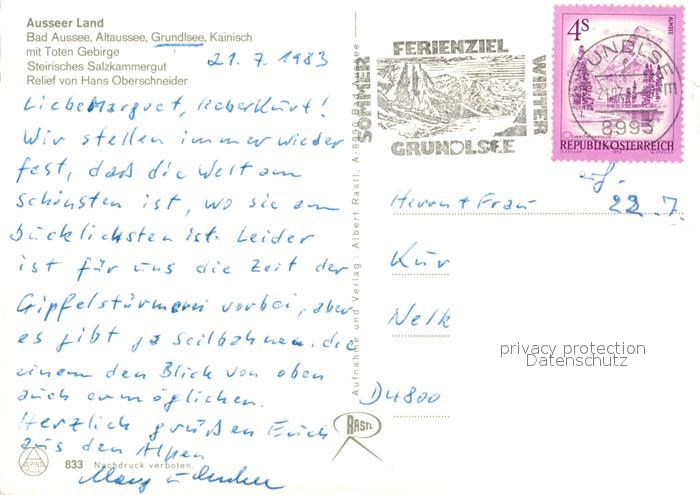 Ausseer Land
Bad Aussee, Altaussee, Grundlsee, Kainisch
mit Toten Gebirge
Steirisches Salzkammergut
Relief von Hans Oberschneider
21.7.1983
Liebe Margret, lieber Kurt!
Wir stellen immer wieder
fest, daß die Welt am
schönsten ist, wo sie am
bucklichsten ist. Leider
ist für uns die Zeit der
Gipfelstürmerei vorbei, aber
es gibt ja Seilbahnen, die
einem den Blick von oben
auch ermöglichen.
Herzlich grüßen Euch
aus den Alpen
ALPINA
833 Nachdruck verboten.
Aufnahme und Verlag: Albert Rastl, A-8990 Bad Aussee
RASTL
SOMMER
FERIENZIEL
WINTER
GRUNDLSEE
4s
ALMSEE
GRUNDLSEE
8993
REPUBLIK ÖSTERREICH
22.7.
Herrn + Frau
Kur
Nelk
D 4800
privacy protection
Datenschutz